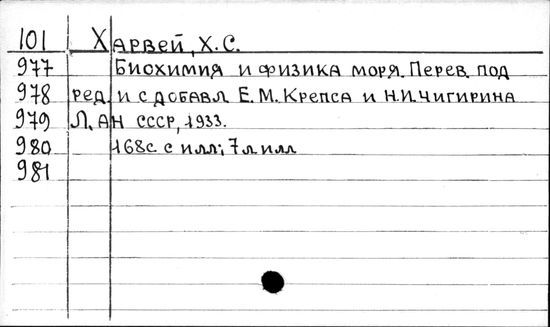 101 Харвей, Х.С.
977 Биохимия и физика моря. Перев. под
978 ред. и с добавл. Е.М. Крепса и Н.И. Чигирина
979 Л. АН СССР, 1933.
980 168с. с илл; 7л илл
981